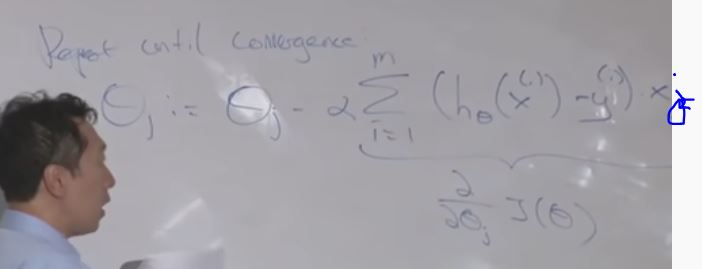 Repeat until convergence:
θ_j := θ_j - α Σ_{i=1}^{m} (h_θ(x^{(i)}) - y^{(i)}) · x_j
∂/∂θ_j J(θ)